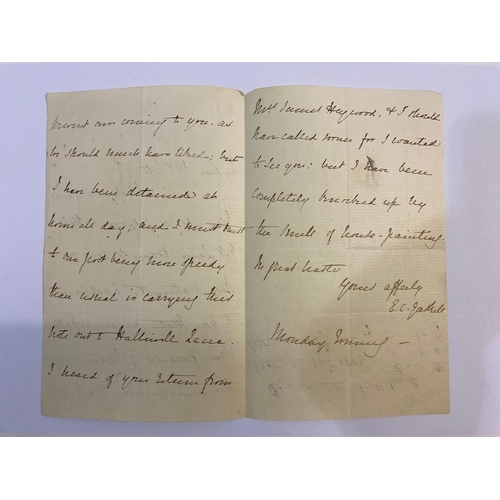 prevent our coming to you, as
we should much have liked; but
I have been detained at
home all day; and I must trust
to our post being more speedy
than usual in carrying this
note out to
I heard of your return from
Mrs James Heywood, & I should
have called sooner for I wanted
to see you; but I have been
completely knocked up by
the smell of house-painting.
In great haste
Yours affely
E. C. Gaskell
Monday Evening –